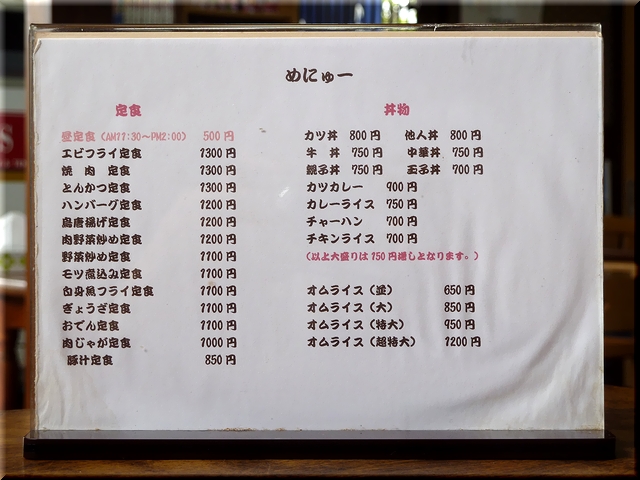 めにゅー
定食
昼定食（AM11:30～PM2:00） 500円
エビフライ定食 1300円
焼　肉　定食 1300円
とんかつ定食 1300円
ハンバーグ定食 1200円
鳥唐揚げ定食 1200円
肉野菜炒め定食 1200円
野菜炒め定食 1100円
モツ煮込み定食 1100円
白身魚フライ定食 1100円
ぎょうざ定食 1100円
おでん定食 1100円
肉じゃが定食 1000円
豚汁定食 850円
丼物
カツ丼 800円 他人丼 800円
牛　丼 750円 中華丼 750円
親子丼 750円 玉子丼 700円
カツカレー 900円
カレーライス 750円
チャーハン 700円
チキンライス 700円
（以上大盛りは150円増しとなります。）
オムライス（並） 650円
オムライス（大） 850円
オムライス（特大） 950円
オムライス（超特大） 1200円